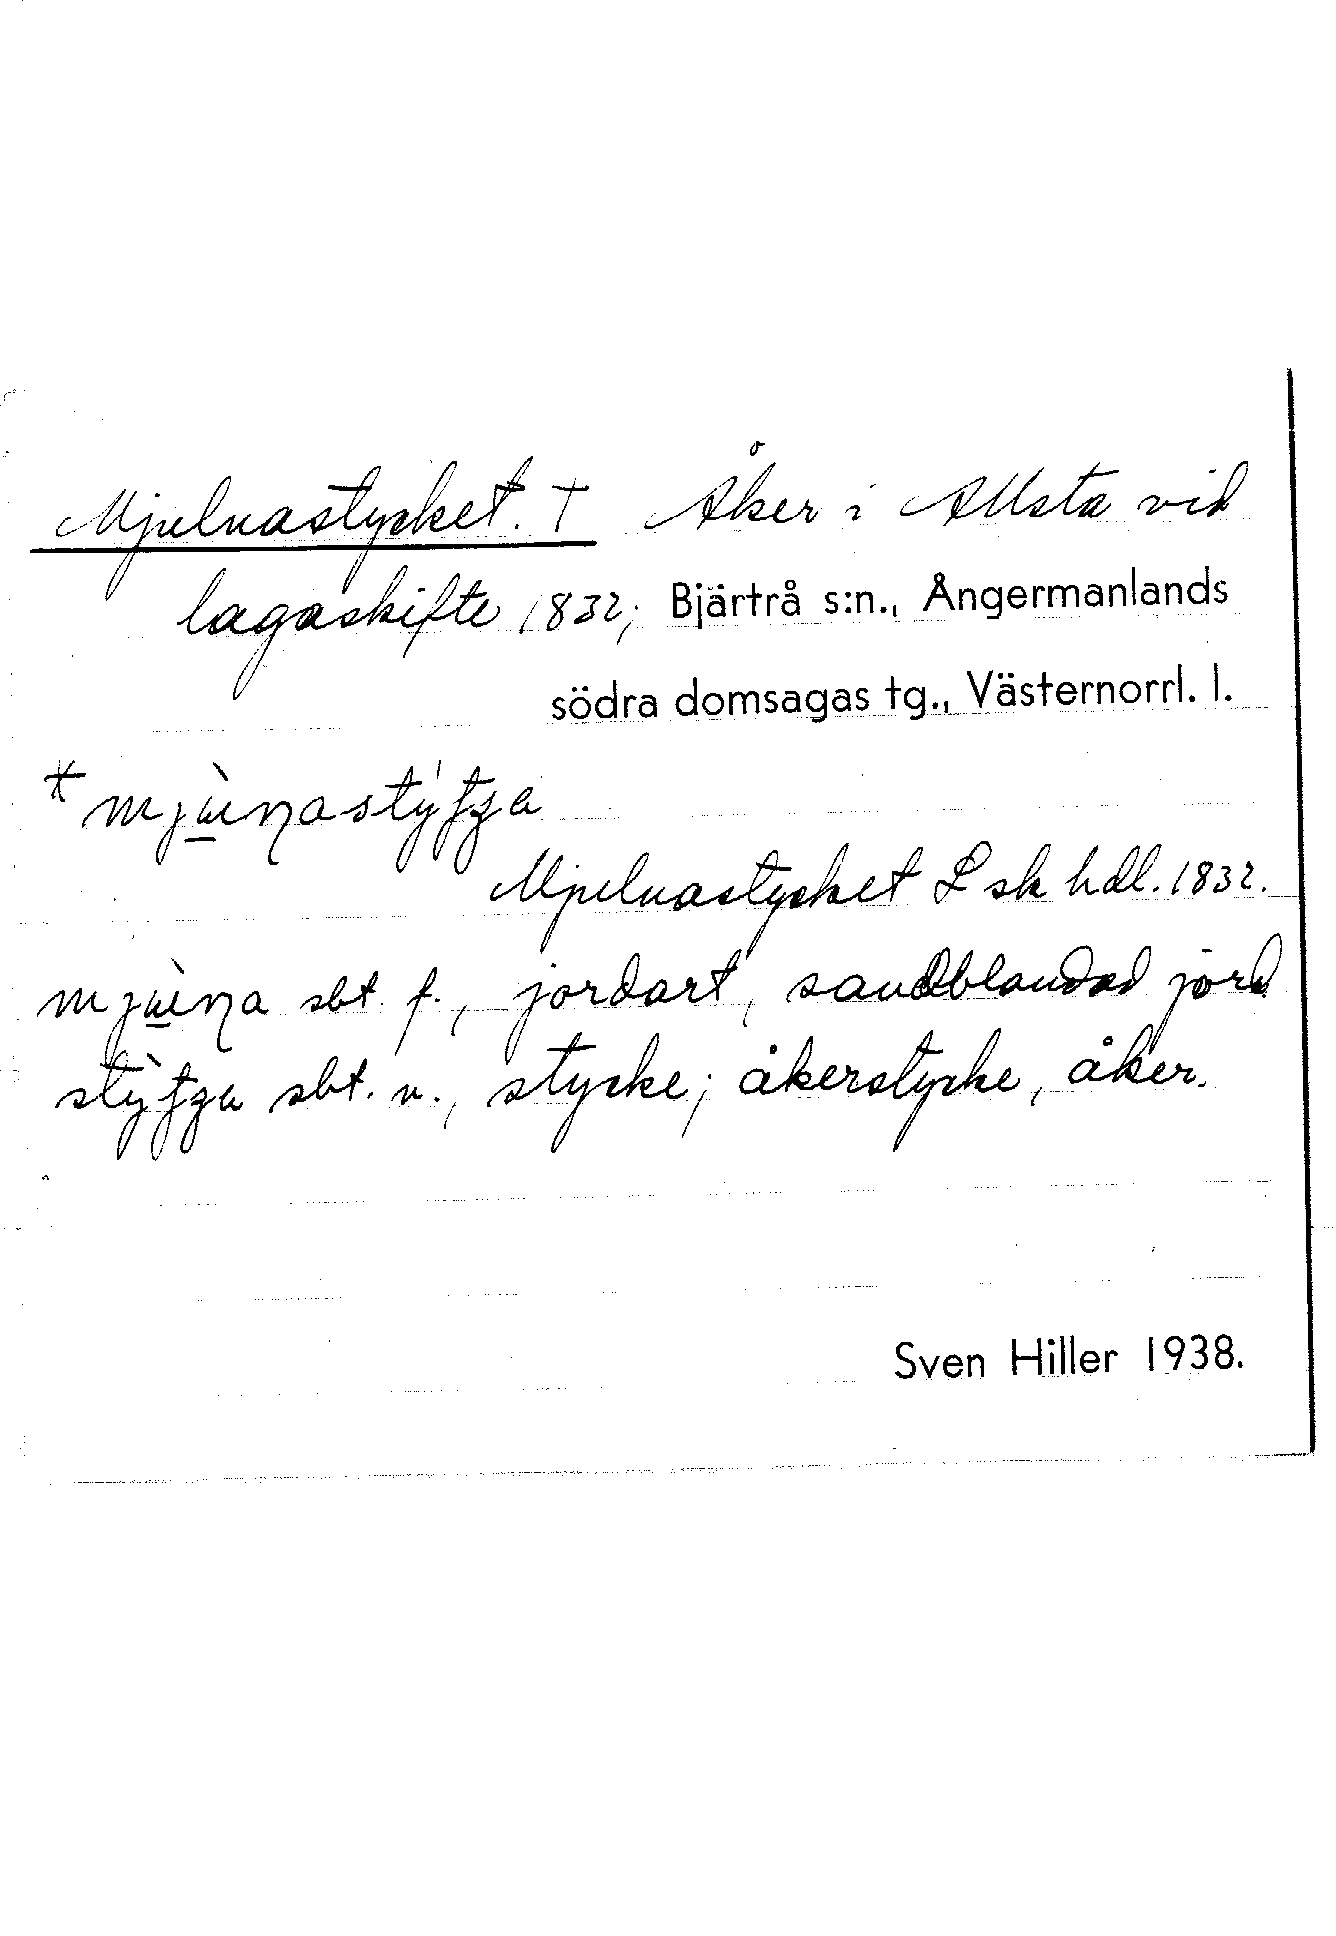 Mjelnastycket. † Åker i Allsta vid
lagaskifte 1832; Bjärtrå s:n., Ångermanlands
södra domsagas tg., Västernorrl. l.
Mjelnastycket L sk hdl. 1832.
sbt. f., jordart, sandblandad jord
sbt. n., stycke; åkerstycke, åker.
Sven Hiller 1938.